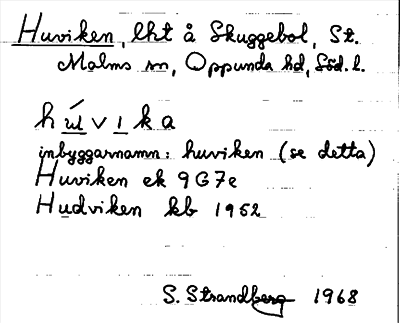 Huviken, lht å Skuggebol, St.
Malms sn, Oppunda hd, Söd. l.
húvika
inbyggarnamn: huviken (se detta)
Huviken ek 9G7e
Hudviken kb 1952
S. Strandberg 1968